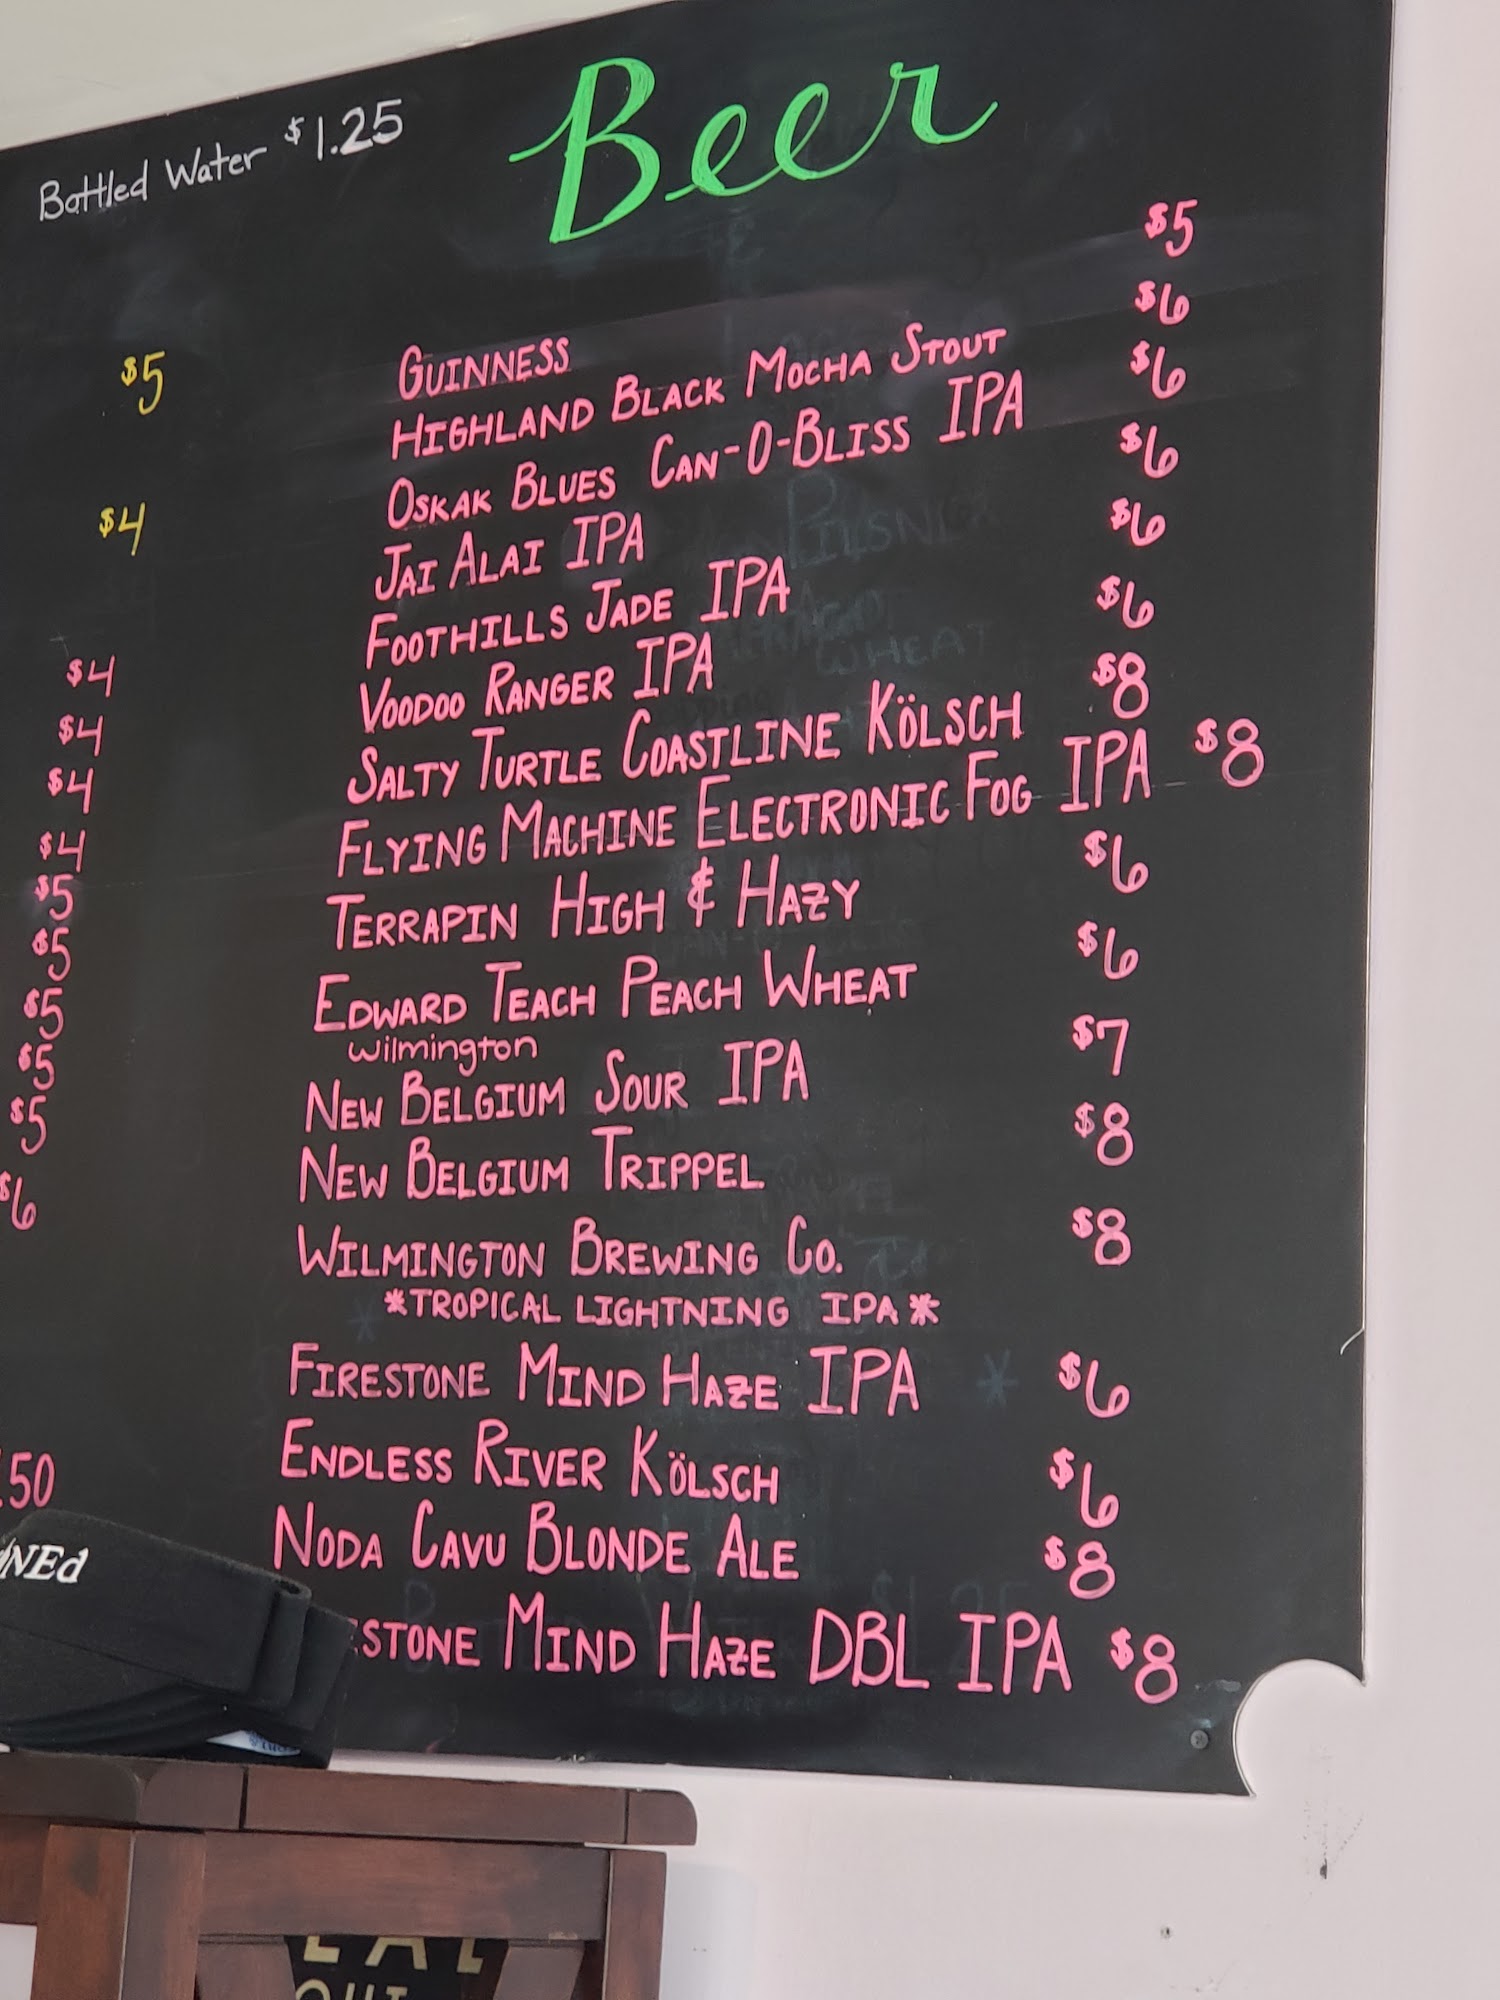 Bottled Water $1.25
Beer
$5
$4
$4
$4
$4
$4
$5
$5
$5
$5
$5
$6
.50
GUINNESS $5
HIGHLAND BLACK MOCHA STOUT $6
OSKAR BLUES CAN-O-BLISS IPA $6
JAI ALAI IPA $6
FOOTHILLS JADE IPA $6
VOODOO RANGER IPA $6
SALTY TURTLE COASTLINE KÖLSCH $8
FLYING MACHINE ELECTRONIC FOG IPA $8
TERRAPIN HIGH & HAZY $6
EDWARD TEACH PEACH WHEAT $6
wilmington
NEW BELGIUM SOUR IPA $7
NEW BELGIUM TRIPPEL $8
WILMINGTON BREWING CO. $8
*TROPICAL LIGHTNING IPA*
FIRESTONE MIND HAZE IPA $6
ENDLESS RIVER KÖLSCH $6
NODA CAVU BLONDE ALE $8
STONE MIND HAZE DBL IPA $8
NEd